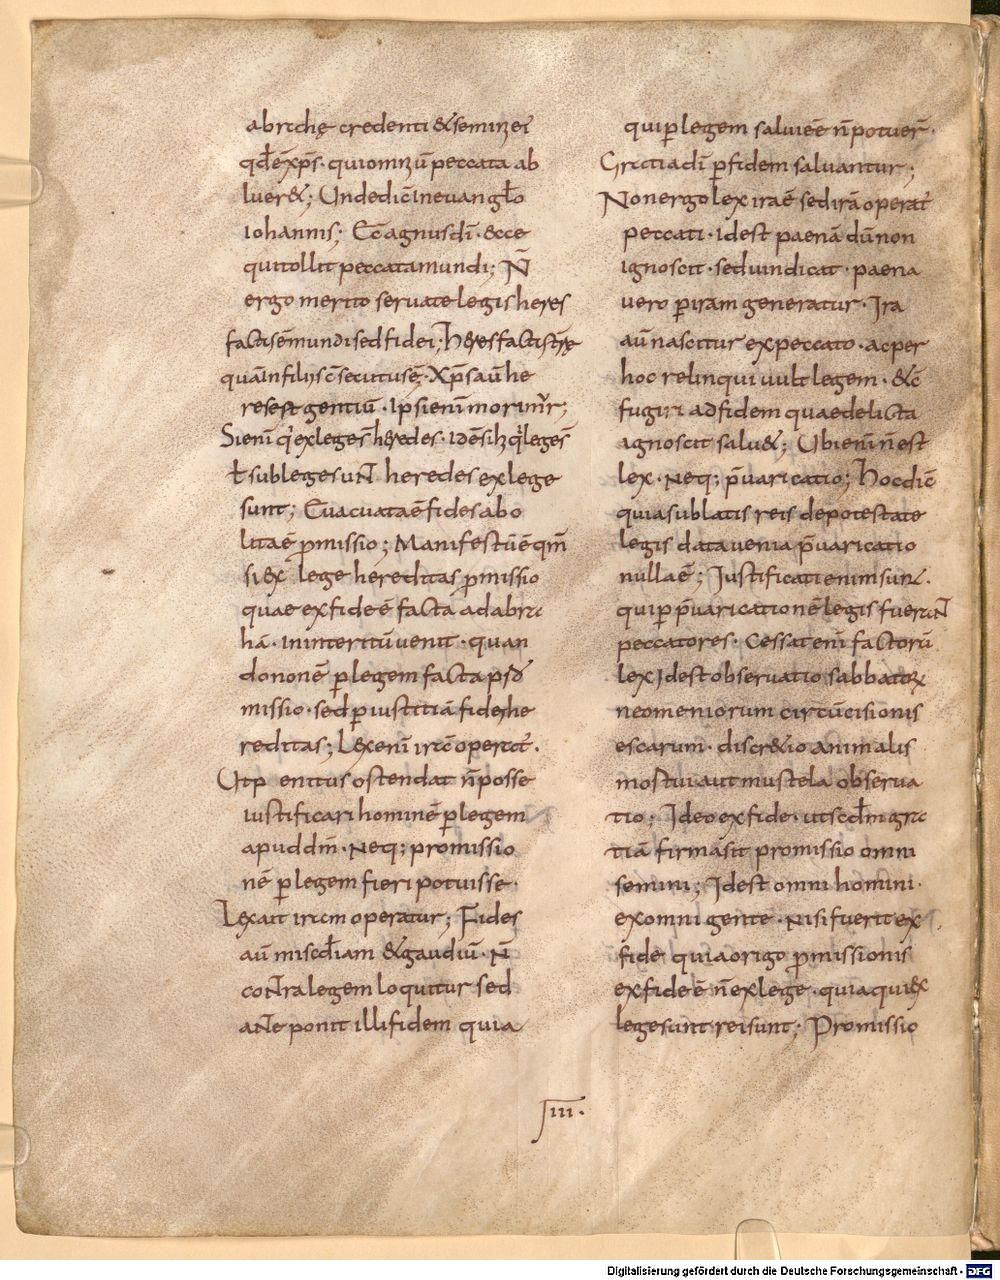 abrahę credenti & semini ei
qd ē xp̄s · qui omniū peccata ab
luer& ; Unde dic̄ in euanglō
iohannis ; Ecc̄ agnus dī · ecce
qui tollit peccata mundi ; N̄
ergo merito seruate legis heres
factus ē mundi sed fidei ;
resest gentiū · Ipsi enim
Si enī q' ex lege s̄ h&redes · id ē sihi q' leges
ł sub lege suNt heredes ex lege
sunt ; Euacuata ē fides abo
lita ē p̄missio ; Manifestū ē qm̄
si ex lege hereditas p̄missio
quae ex fide ē facta ad abra
hā · in interitū uenit · quan
do non ē p̱ legem facta p̱
missio · sed p̱ iustitiā fidei he
reditas ; Lex enī irā operat̄ ·
Utp enitus ostendat n̄ posse
iustificari hominē p̱ legem
apud dm̄ · Neq; promissio
nē p̱ legem fieri potuisse ·
Lex ait iram operatur ; Fides
aū misc̄diam & gaudiū · N̄
coNtra legem loquitur sed
aNte ponit illi fidem quia
qui p̱ legem salui eē n̄ potuer̄ ·
Gratia dī p̱ fidem saluantur ;
Non ergo lex ira ē sed irā operat̄
peccati · id est paenā dū non
ignoscit · sed uindicat · paena
uero p̱ iram generatur · Ira
aū nascitur ex peccato · ac per
hoc relinqui uult legem · &c̄
fugiri ad fidem quae delicta
agnoscit salu& ; Ubi enī n̄ est
lex · Neq; p̄uaricatio ; Hoc dic̄
quia sublatis reis de potestate
legis data uenia p̄uaricatio
nulla ē ; Iustificati enim sun& ·
qui p̱ p̄uaricationē legis fueruNt
peccatores · Cessat enī factorū
lex Id est obseruatio sabbatorx
neomeniorum circūcisionis
escarum · discr&io animalis
mostui aut mustela obserua
tio · Ideo ex fide · ut scdm̄ gra
tiā firma sit promissio omni
semini ; Id est omni homini ·
ex omni gente · Nisi fuerit ex
fide quia origo p̄missionis
ex fide ē n̄ ex lege · quia qui ex
lege sunt rei sunt ; Promissio
IIII ·
Digitalisierung gefördert durch die Deutsche Forschungsgemeinschaft · DFG